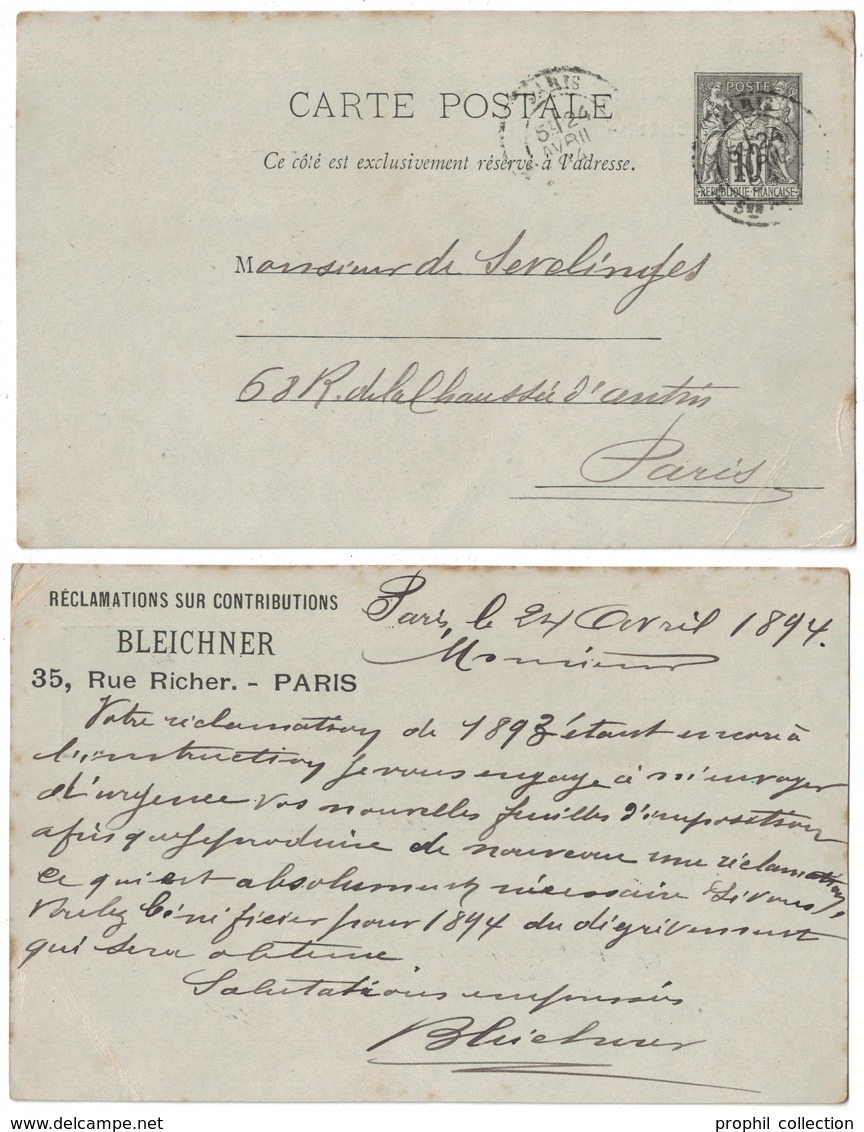 CARTE POSTALE
Ce côté est exclusivement réservé à l'adresse.
PARIS
5E 24
AVRIL
POSTE
10
REPUBLIQUE FRANÇAISE
PARIS
Monsieur de Sevelinges
68 R. de la Chaussée d'antin
Paris
RÉCLAMATIONS SUR CONTRIBUTIONS
BLEICHNER
35, Rue Richer. - PARIS
Paris, le 24 Avril 1894.
Monsieur
Votre réclamation de 1893 étant encore à
l'instruction je vous engage à m'envoyer
d'urgence vos nouvelles feuilles d'imposition
afin que je produise de nouveau une réclamation,
ce qui est absolument nécessaire si vous
voulez bénéficier pour 1894 du dégrèvement
qui sera obtenu
Salutations empressées
Bleichner
www.delcampe.net
prophil collection